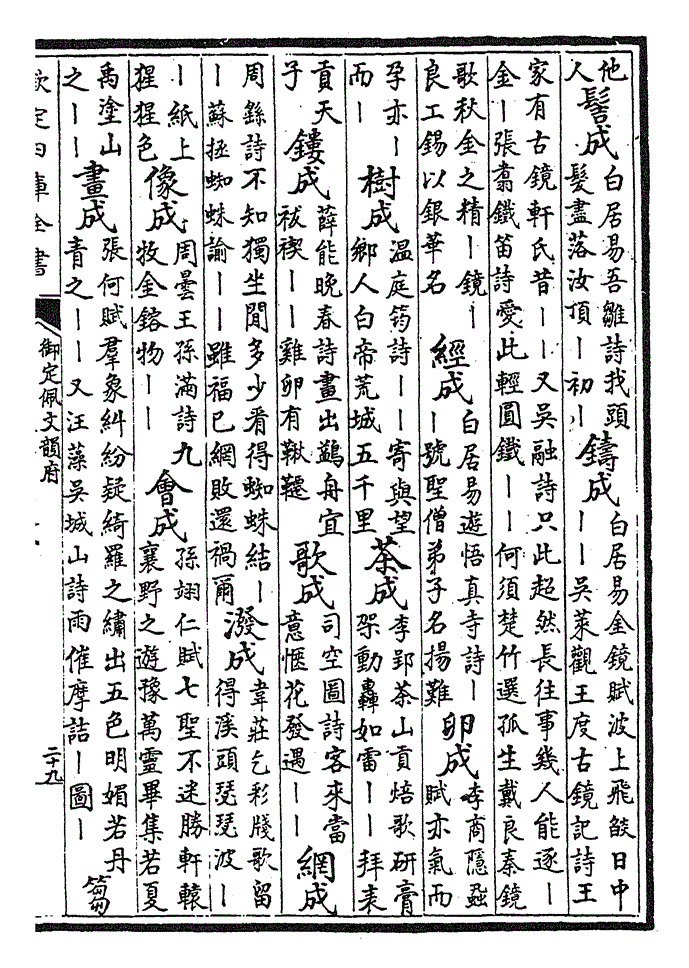 他
人
髻成
白居易吾雛詩我頭
髮盡落汝頂丨初丨
鑄成
白居易金鏡賦波上飛燄日中
丨丨吳萊觀王度古鏡記詩王
家有古鏡軒氏昔丨丨又吳融詩只此超然長往事幾人能逐丨
金丨張翥鐵笛詩愛此輕圓鐵丨丨何須楚竹選孤生戴良秦鏡
歌秋金之精丨鏡丨
良工錫以銀華名
經成
白居易遊悟真寺詩丨
丨號聖僧弟子名揚難
卵成
李商隱蝨
賦亦氣而
孕亦丨
而丨
樹成
温庭筠詩丨丨寄與望
鄉人白帝荒城五千里
茶成
李郢茶山貢焙歌研膏
架動轟如雷丨丨拜表
貢天
子
鏤成
薛能晚春詩畫出鷁舟宜
祓禊丨丨雞卵有鞦韆
歌成
司空圖詩客來當
意愜花發遇丨丨
網成
周繇詩不知獨坐閒多少看得蜘蛛結丨
丨蘇拯蜘蛛諭丨丨雖福已網敗還禍爾
潑成
韋莊乞彩牋歌留
得溪頭瑟瑟波丨
丨紙上
猩猩色
像成
周曇王孫滿詩九
牧金鎔物丨丨
會成
孫翃仁賦七聖不迷勝軒轅
襄野之遊豫萬靈畢集若夏
禹塗山
之丨丨
畫成
張何賦羣象糾紛疑綺羅之繡出五色明媚若丹
青之丨丨又汪藻吳城山詩雨催摩詰丨圖丨
芻
欽定四庫全書
御定佩文韻府
二十九